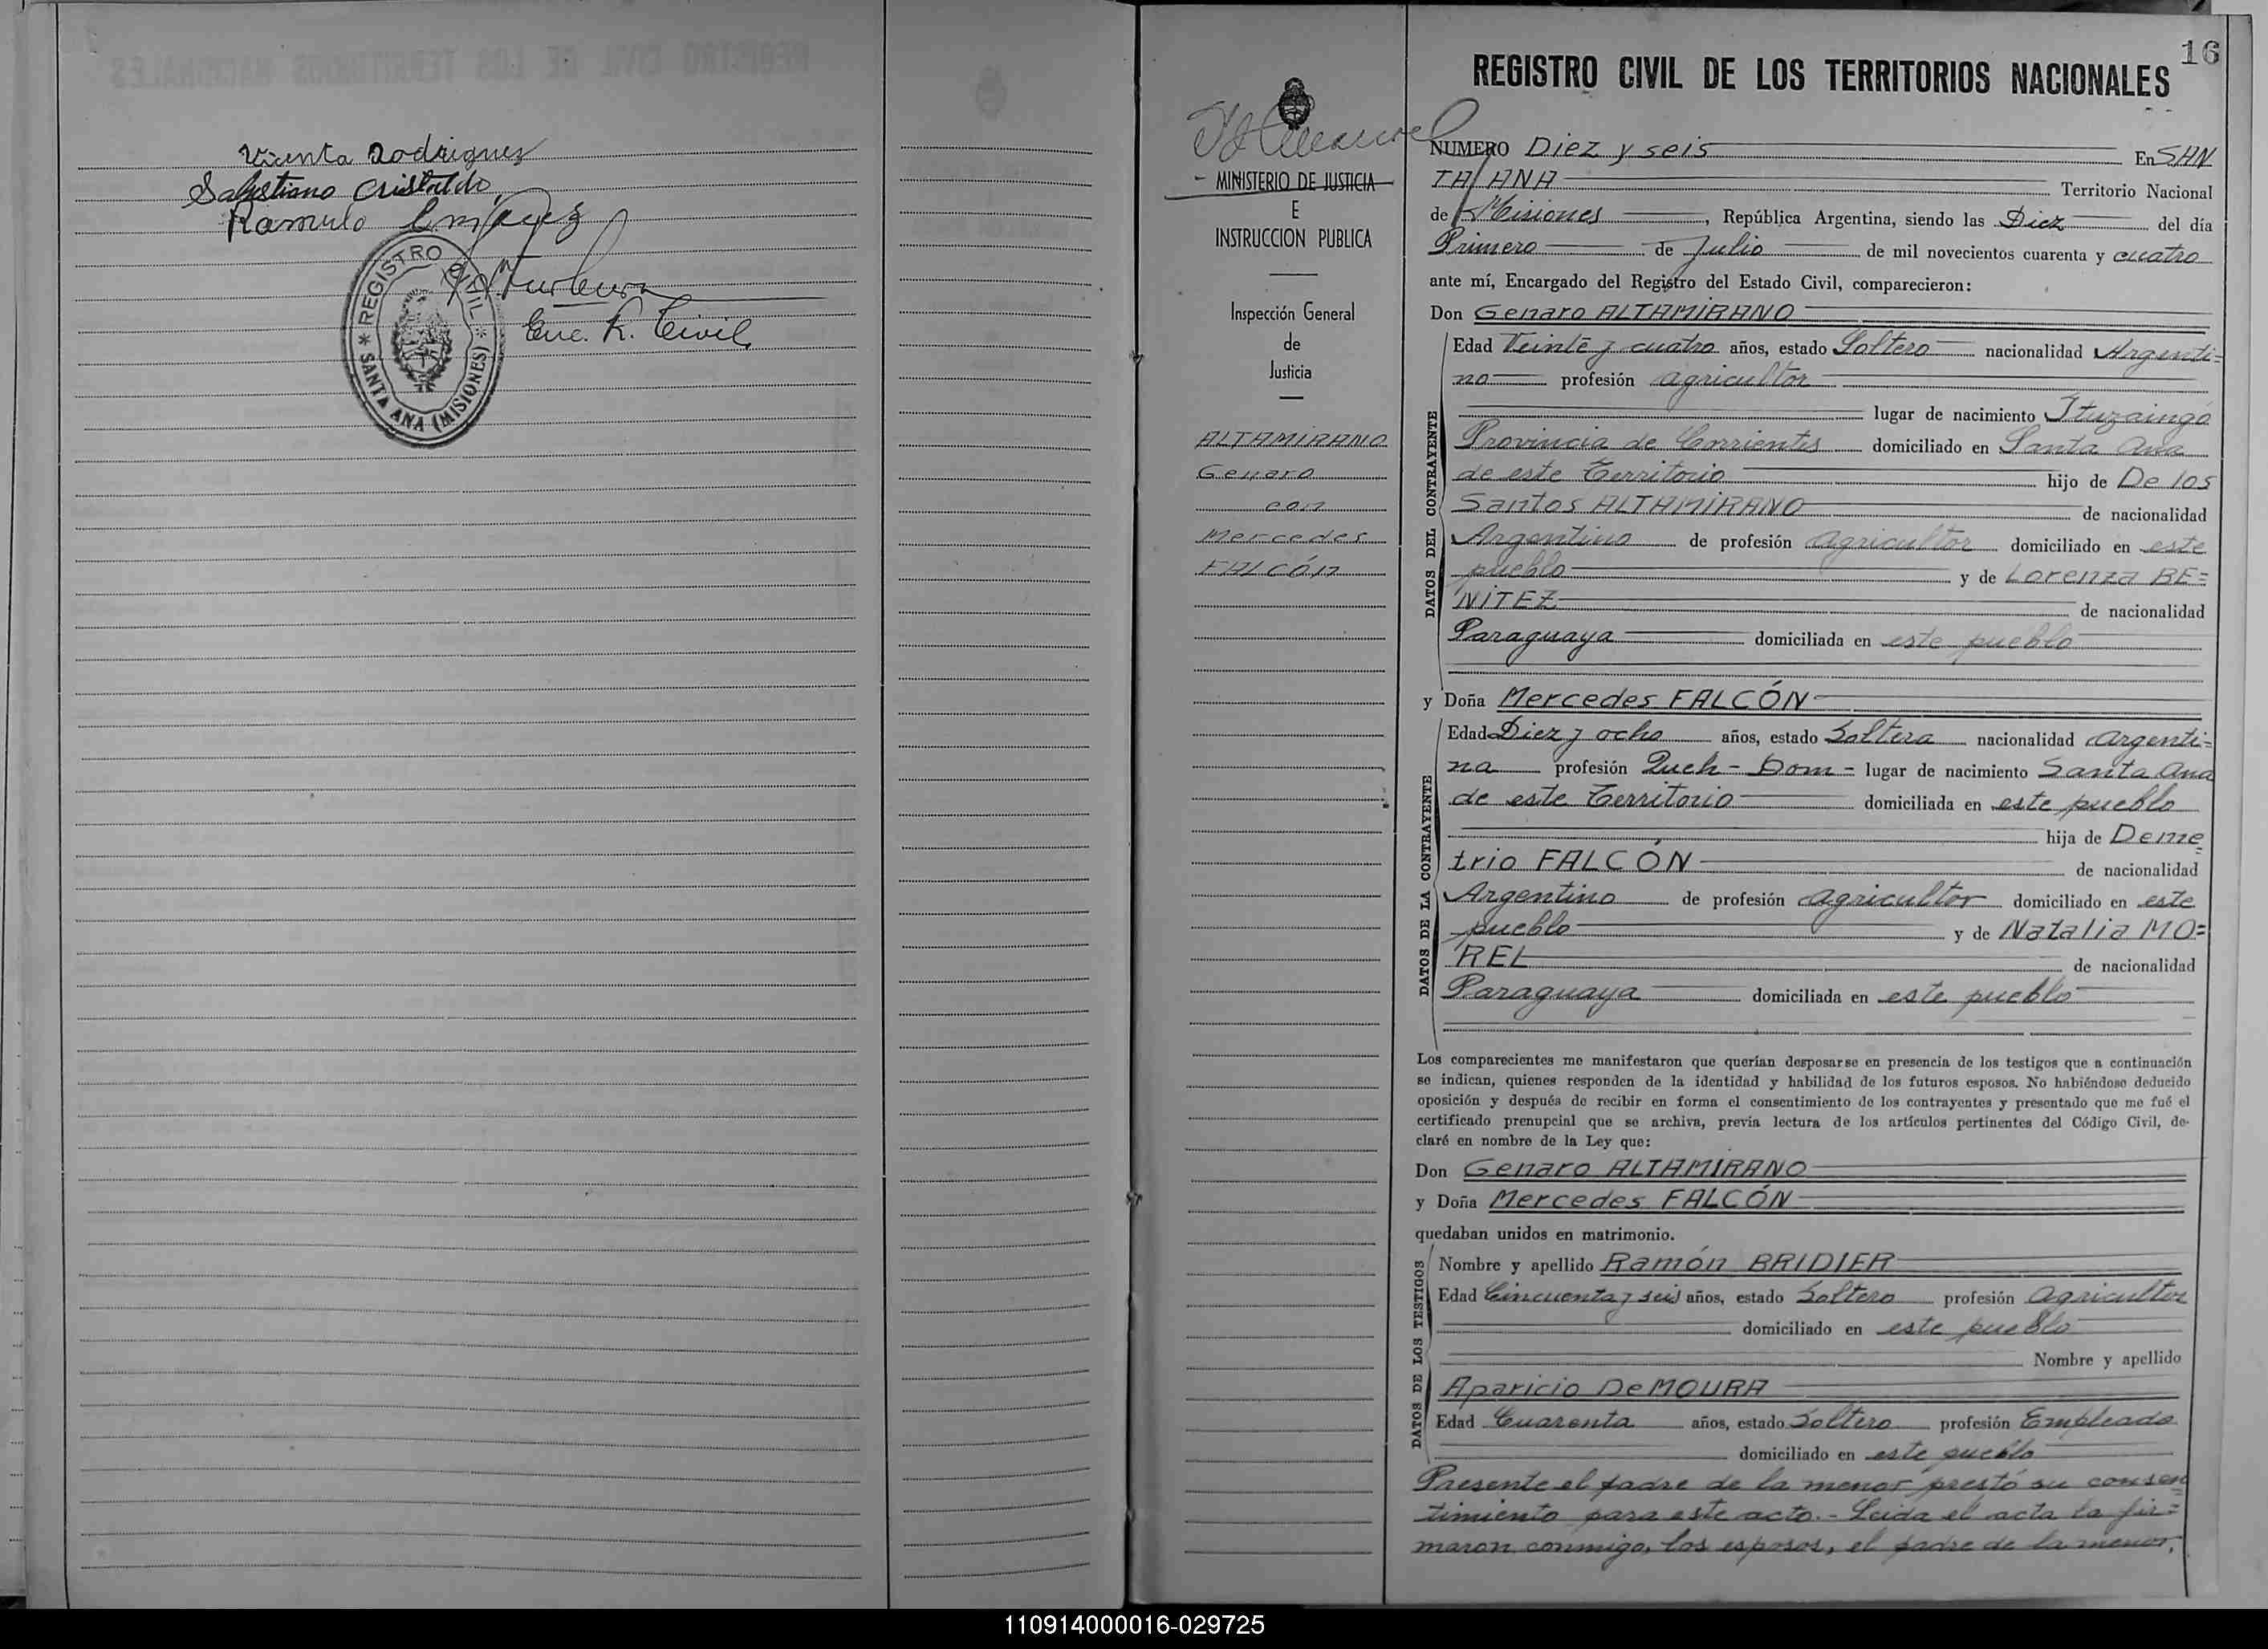 Vicenta Rodrigues
Salustiano Cristaldo
Ramulo
Enc. R. Civil
* REGISTRO CIVIL * SANTA ANA (MISIONES)
MINISTERIO DE JUSTICIA
E
INSTRUCCION PUBLICA
Inspección General
de
Justicia
ALTAMIRANO
Genaro
con
Mercedes
FALCÓN
16
REGISTRO CIVIL DE LOS TERRITORIOS NACIONALES
NUMERO Diez y seis En SAN
TA ANA Territorio Nacional
de Misiones, República Argentina, siendo las Diez del día
Primero de Julio de mil novecientos cuarenta y cuatro
ante mí, Encargado del Registro del Estado Civil, comparecieron:
Don Genaro ALTAMIRANO
DATOS DEL CONTRAYENTE
Edad Veinte y cuatro años, estado Soltero nacionalidad Argenti=
no profesión agricultor
lugar de nacimiento Ituzaingó
Provincia de Corrientes domiciliado en Santa Ana
de este Territorio hijo de De los
Santos ALTAMIRANO de nacionalidad
Argentino de profesión agricultor domiciliado en este
pueblo y de Lorenza BE=
NITEZ de nacionalidad
Paraguaya domiciliada en este pueblo
y Doña Mercedes FALCÓN
DATOS DE LA CONTRAYENTE
Edad Diez y ocho años, estado Soltera nacionalidad Argenti=
na profesión Queh - Dom - lugar de nacimiento Santa Ana
de este Territorio domiciliada en este pueblo
hija de Deme=
trio FALCÓN de nacionalidad
Argentino de profesión agricultor domiciliado en este
pueblo y de Natalia MO=
REL de nacionalidad
Paraguaya domiciliada en este pueblo
Los comparecientes me manifestaron que querían desposarse en presencia de los testigos que a continuación
se indican, quienes responden de la identidad y habilidad de los futuros esposos. No habiéndose deducido
oposición y después de recibir en forma el consentimiento de los contrayentes y presentado que me fué el
certificado prenupcial que se archiva, previa lectura de los artículos pertinentes del Código Civil, de-
claré en nombre de la Ley que:
Don Genaro ALTAMIRANO
y Doña Mercedes FALCÓN
quedaban unidos en matrimonio.
DATOS DE LOS TESTIGOS
Nombre y apellido Ramón BRIDIER
Edad Cincuenta y seis años, estado Soltero profesión Agricultor
domiciliado en este pueblo
Nombre y apellido
Aparicio DeMOURA
Edad Cuarenta años, estado Soltero profesión Empleado
domiciliado en este pueblo
Presente el padre de la menor prestó su consen=
timiento para este acto. - Leida el acta la fir=
maron conmigo, los esposos, el padre de la menor,
110914000016-029725